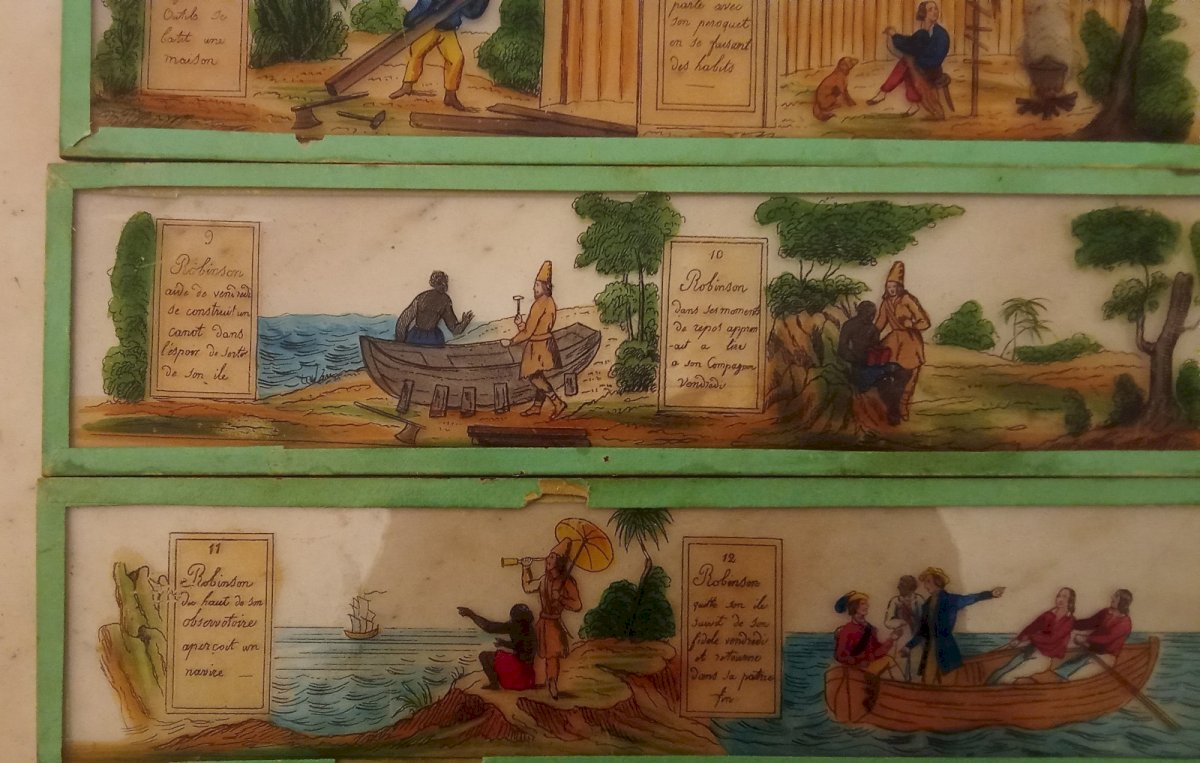 Outils se
batit une
maison
parle avec
son peroquet
en se faisant
des habits
9
Robinson
aide de vendredi
se construit un
canot dans
l'espoir de sortir
de son ile
10
Robinson
dans ses moments
de repos appren
ait a lire
a son Compagnon
Vendredi
11
Robinson
du haut de son
observatoire
aperçoit un
navire
12
Robinson
quitte son ile
suivit de son
fidele vendredi
et retourne
dans sa patrie
fin